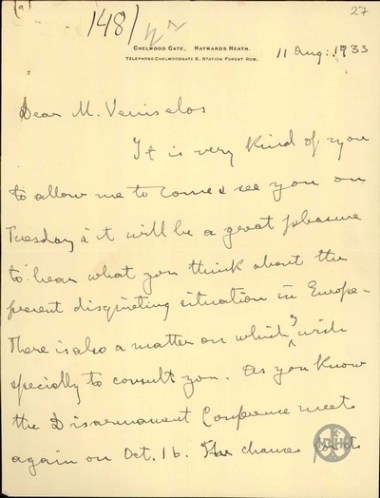 (a)
27
148/
CHELWOOD GATE, HAYWARDS HEATH.
TELEPHONE: CHELWOODGATE 8. STATION FOREST ROW.
11 Aug: 1933
Dear M. Veniselos
It is very kind of you
to allow me to come & see you on
Tuesday & it will be a great pleasure
to hear what you think about the
present disquieting situation in Europe-
There is also a matter on which I wish
specially to consult you. As you know
the Disarmament Conference meets
again on Oct. 16. The chances